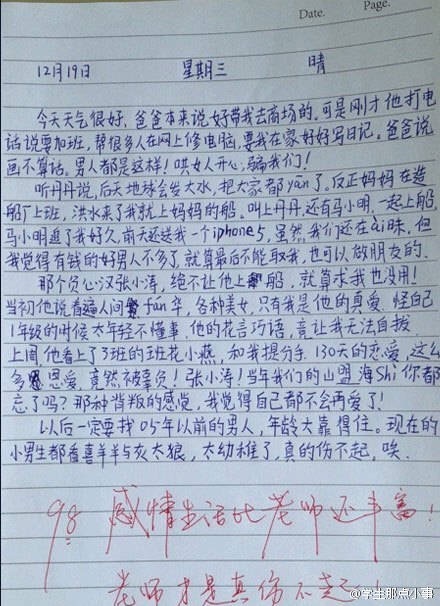 Date.
Page.
12月19日 星期三 晴
今天天气很好,爸爸本来说好带我去商场的。可是刚才他打电
话说要加班,帮很多人在网上修电脑,要我在家好好写日记。爸爸说
画不算话。男人都是这样!哄女人开心,骗我们!
听丹丹说,后天地球会发大水,把大家都yān了。反正妈妈在造
船厂上班,洪水来了我就上妈妈的船。叫上丹丹,还有马小明,一起上船,
马小明追了我好久,前天还送我一个iphone5,虽然我们还在ài昧,但
我觉得有钱的好男人不多了,就算最后不能取我,也可以做朋友的。
那个负心汉张小涛,绝不让他上船,就算求我也没用!
当初他说看遍人间fán华,各种美女,只有我是他的真爱,怪自己
1年级的时候太年轻不懂事,他的花言巧语,竟让我无法自拔
上周他看上了3班的班花小燕,和我提分手,130天的恋爱,这么
多恩爱,竟然被辜负!张小涛!当年我们的山盟海Shi你都
忘了吗?那种背叛的感觉,我觉得自己都不会再爱了!
以后一定要找05年以前的男人,年龄大靠得住。现在的
小男生都看喜羊羊与灰太狼,太幼稚了,真的伤不起,唉。
98 感情生活比老师还丰富!
老师才是真伤不起!
@学生那点小事